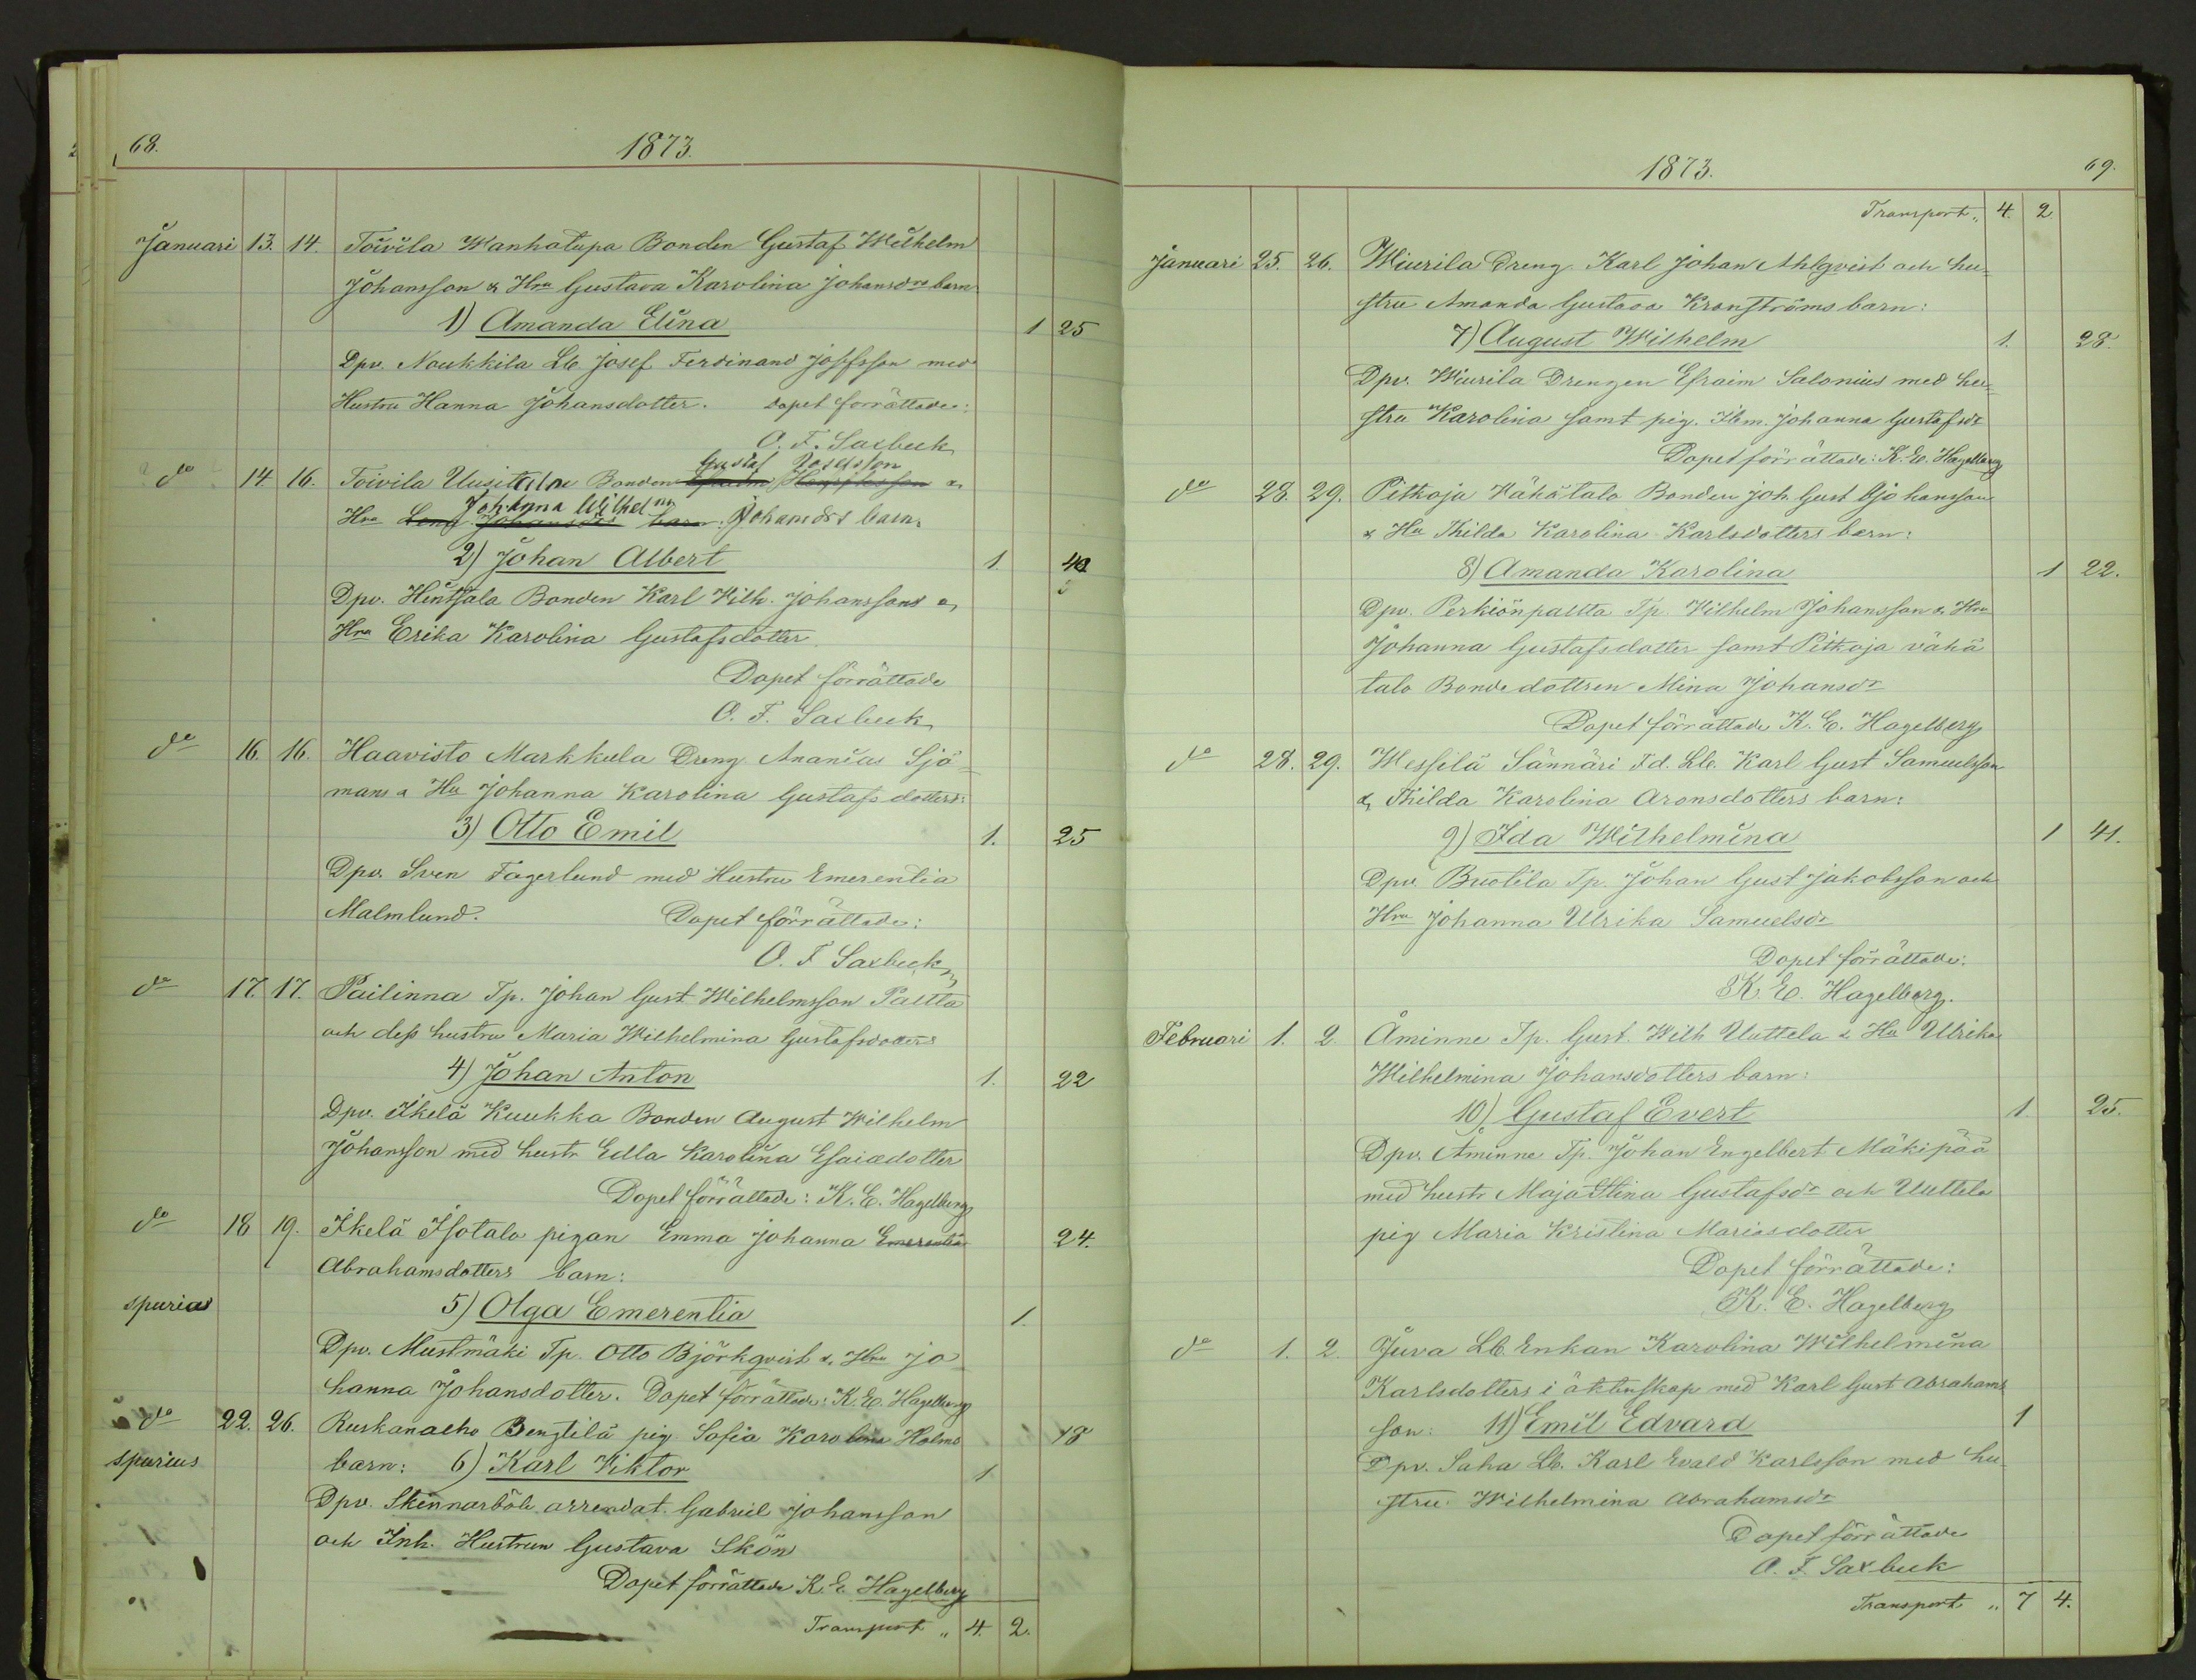 68.
1873.
Januari 13. 14. Toivila Wanhatupa Bonden Gustaf Wilhelm
Johansson & Hru Gustava Karolina Johansdrs barn
1) Amanda Elina 1 25
Dpv. Naukkila Lb Josef Ferdinand Josefsson med
Hustru Hanna Johansdotter. Dopet förrättade:
O. F. Saxbeck
do 14. 16. Toivila Uusitalo Bonden Gustaf Josefsson &
Hru Johanna Wilhelm Johansdrs barn.
2) Johan Albert 1. 40
Dpv. Hintsala Bonden Karl Wilh. Johanssons &
Hru Erika Karolina Gustafsdotter
Dopet förrättade
O. F. Saxbeck
do 16. 16. Haavisto Markkula Dreng Ananias Sjö-
mans & Hu Johanna Karolina Gustafsdotters:
3) Otto Emil 1. 25
Dpv. Sven Fagerlund med Hustru Emerentia
Malmlund. Dopet förrättade:
O. F. Saxbeck
do 17. 17. Pailinna Tp. Johan Gust Wilhelmsson Paltta
och dess hustru Maria Wilhelmina Gustafsdotters
4) Johan Anton 1. 22
Dpv. Ikelä Kuukka Bonden August Wilhelm
Johansson med hustr Edla Karolina Esaiædotter
Dopet förrättade: K. E. Hagelberg
do 18 19. Ikelä Isotalo pigan Emma Johanna Emerentia 24.
Abrahamsdotters barn:
spurias 5) Olga Emerentia 1.
Dpv. Mustmäki Tp. Otto Björkqvist & Hru Jo
hanna Johansdotter. Dopet förrättade: K. E. Hagelberg
do 22. 26. Ruskanaho Bengtilä pig. Sofia Karolina Holms 18
spurius barn: 6) Karl Viktor 1.
Dpv. Skinnarböle arrendat. Gabriel Johansson
och Inh. Hustrun Gustava Skön
Dopet förrättade K. E. Hagelberg
Transport „ 4. 2.
1873.
69.
Transport „ 4. 2.
Januari 25. 26. Wiurila Dreng Karl Johan Ahlqvist och hu-
stru Amanda Gustava Kronströms barn:
7) August Wilhelm 1. 28.
Dpv. Wiurila Drengen Efraim Salonius med hu-
stru Karolina samt pig. Ibm. Johanna Gustafsdr
Dopet förrättade: K. E. Hagelberg
do 28. 29. Pitkoja Vähätalo Bonden Joh. Gust Johansson
& Hu Thilda Karolina Karlsdotters barn:
8) Amanda Karolina 1 22.
Dpv. Perkiönpaltta Tp. Wilhelm Johansson & Hru
Johanna Gustafsdotter samt Pitkoja vähä
talo Bondedottren Mina Johansdr
Dopet förrättade K. E. Hagelberg
do 28. 29. Messilä Sännäri Fd. Lb. Karl Gust Samuelsson
& Thilda Karolina Aronsdotters barn:
9) Ida Wilhelmina 1 41.
Dpv. Buotila Tp. Johan Gust Jakobsson och
Hru Johanna Ulrika Samuelsdr
Dopet förrättade:
K. E. Hagelberg.
Februari 1. 2. Åminne Tp. Gust. Wilh Uuttela & Hu Ulrika
Wilhelmina Johansdotters barn:
10) Gustaf Evert 1. 25.
Dpv. Åminne Tp. Johan Engelbert Mäkipää
med hustr Maja Stina Gustafsdr och Uuttela
pig Maria Kristina Mariasdotter
Dopet förrättade:
K. E. Hagelberg
do 1. 2. Juva Lb. Enkan Karolina Wilhelmina
Karlsdotters i äktenskap med Karl Gust Abrahams
son: 11) Emil Edvard 1
Dpv. Saha Lb. Karl Evald Karlsson med hu
stru Wilhelmina Abrahamsdr
Dopet förrättade
O. F. Saxbeck
Transport „ 7 4.